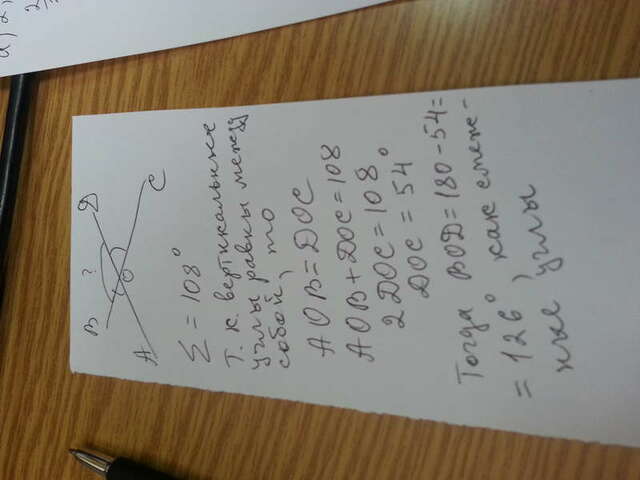 B ? Д
O
A C
Σ = 108°
Т. к. вертикальные
углы равны между
собой, то
AOB = ДOC
AOB + ДOC = 108
2 ДOC = 108
ДOC = 54°
Тогда BOД = 180 - 54 =
= 126°, как смеж-
ные углы